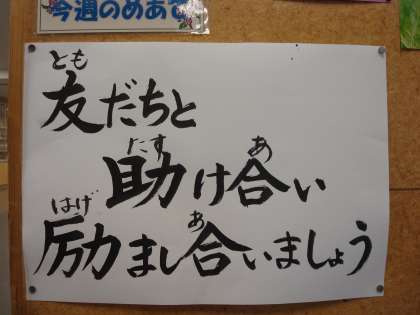 今週のめあて
とも
友だちと
たす あ
助け合い
はげ あ
励まし合いましょう